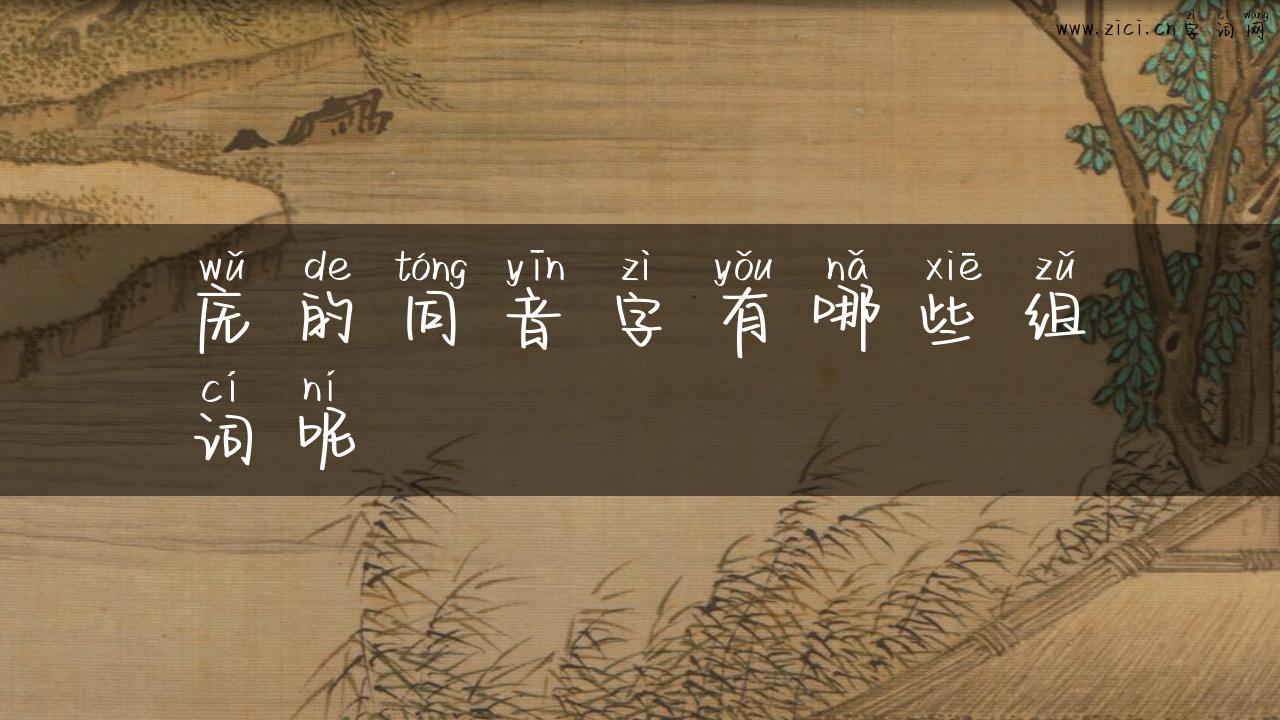 zì cí wǎng
www.zici.cn字词网
wǔ de tóng yīn zì yǒu nǎ xiē zǔ
庑的同音字有哪些组
cí ní
词呢